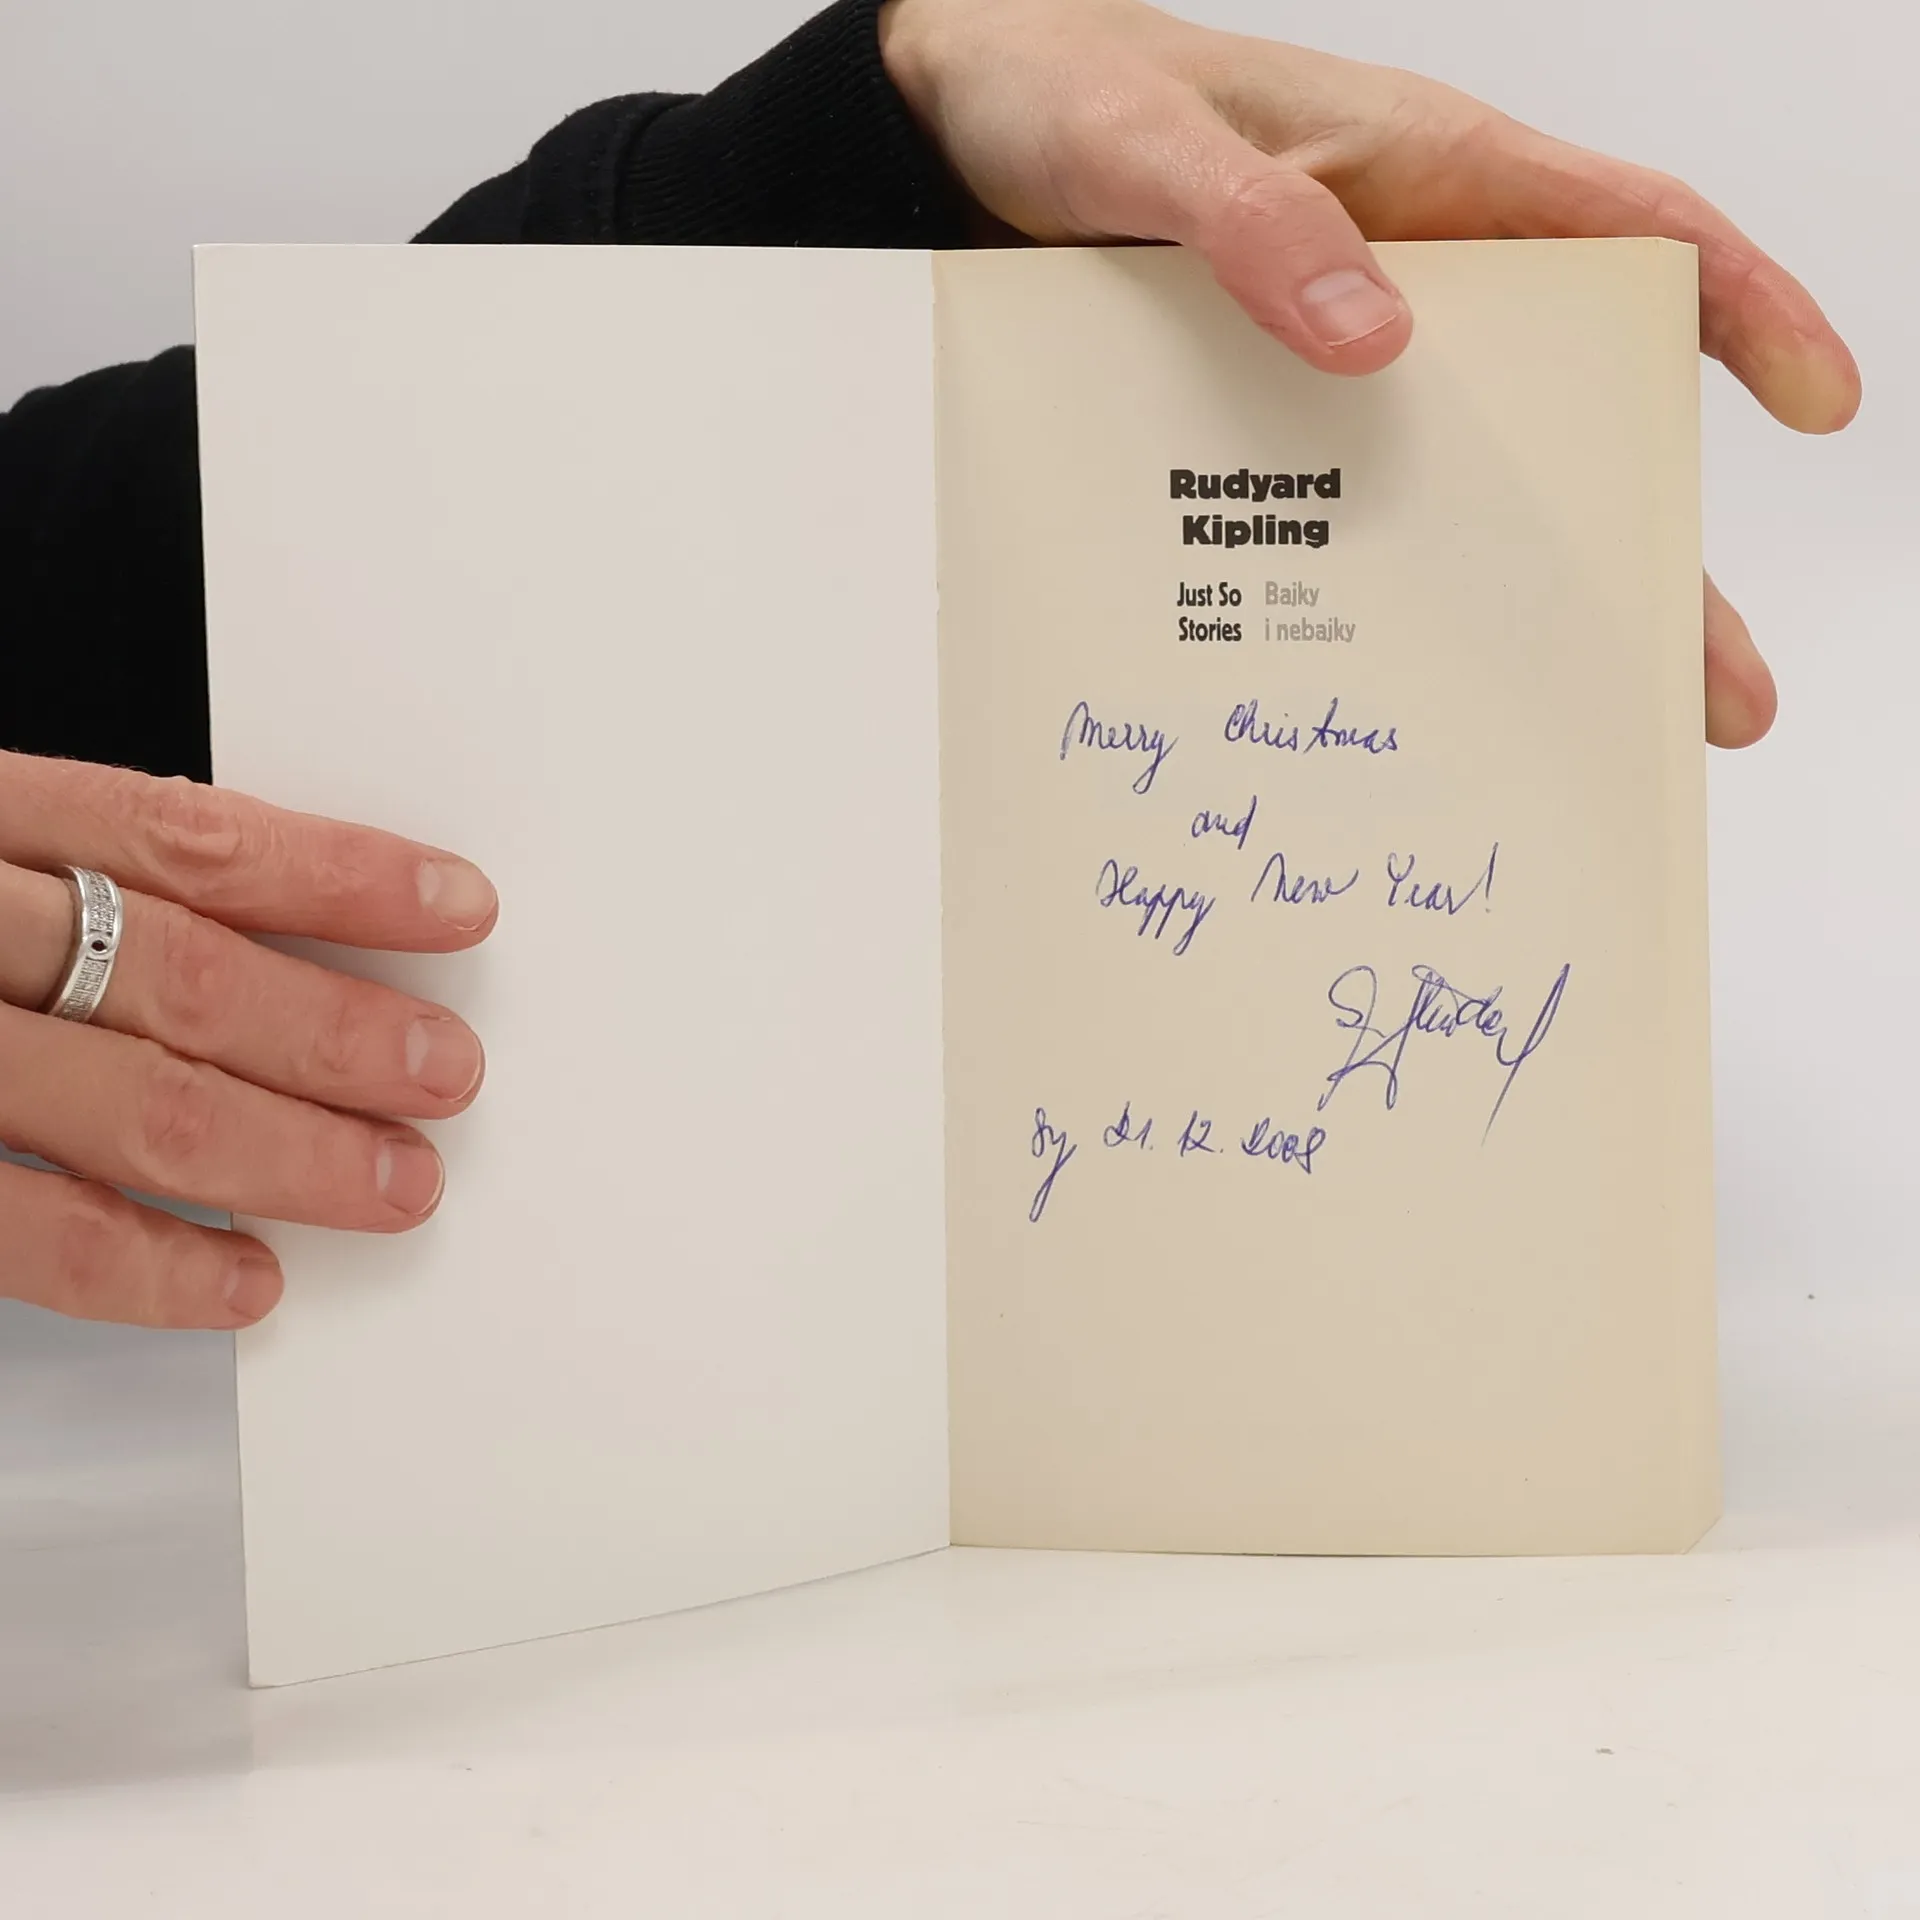 Rudyard
Kipling
Just So
Stories
Bajky
i nebajky
Merry Christmas
and
Happy New Year!
21. 12. 2008